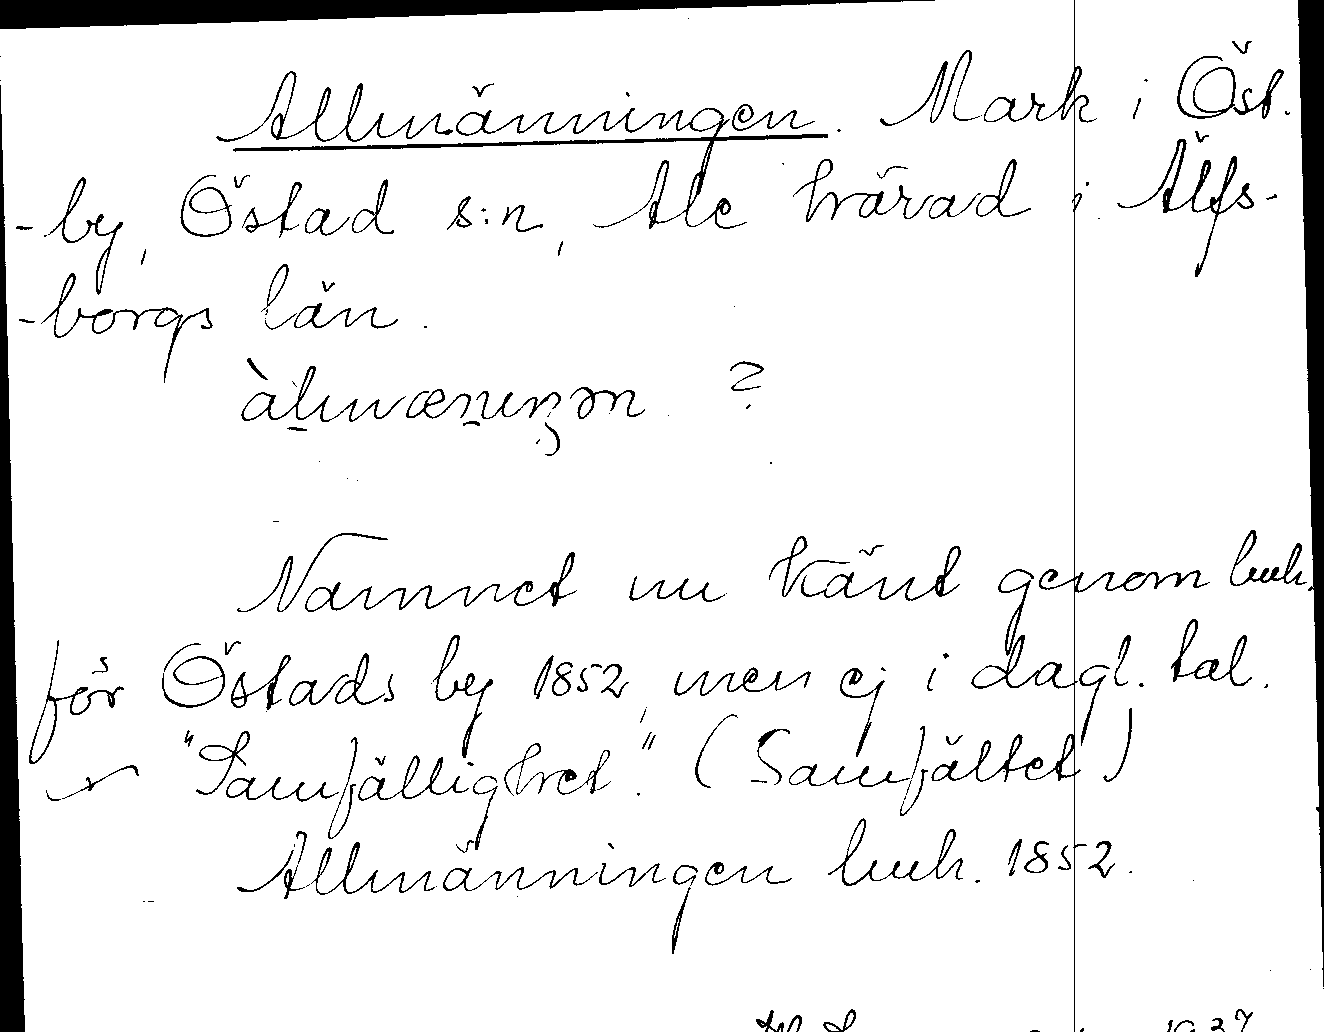 Allmänningen. Mark i Öst.
-by, Östad s:n, Ale härad i Älfs-
-borgs län.
àlmænıŋən ?
Namnet nu känt genom lmh.
för Östads by 1852, men ej i dagl. tal.
"Samfällighet." (Samfältet)
Allmänningen lmh. 1852.
1937